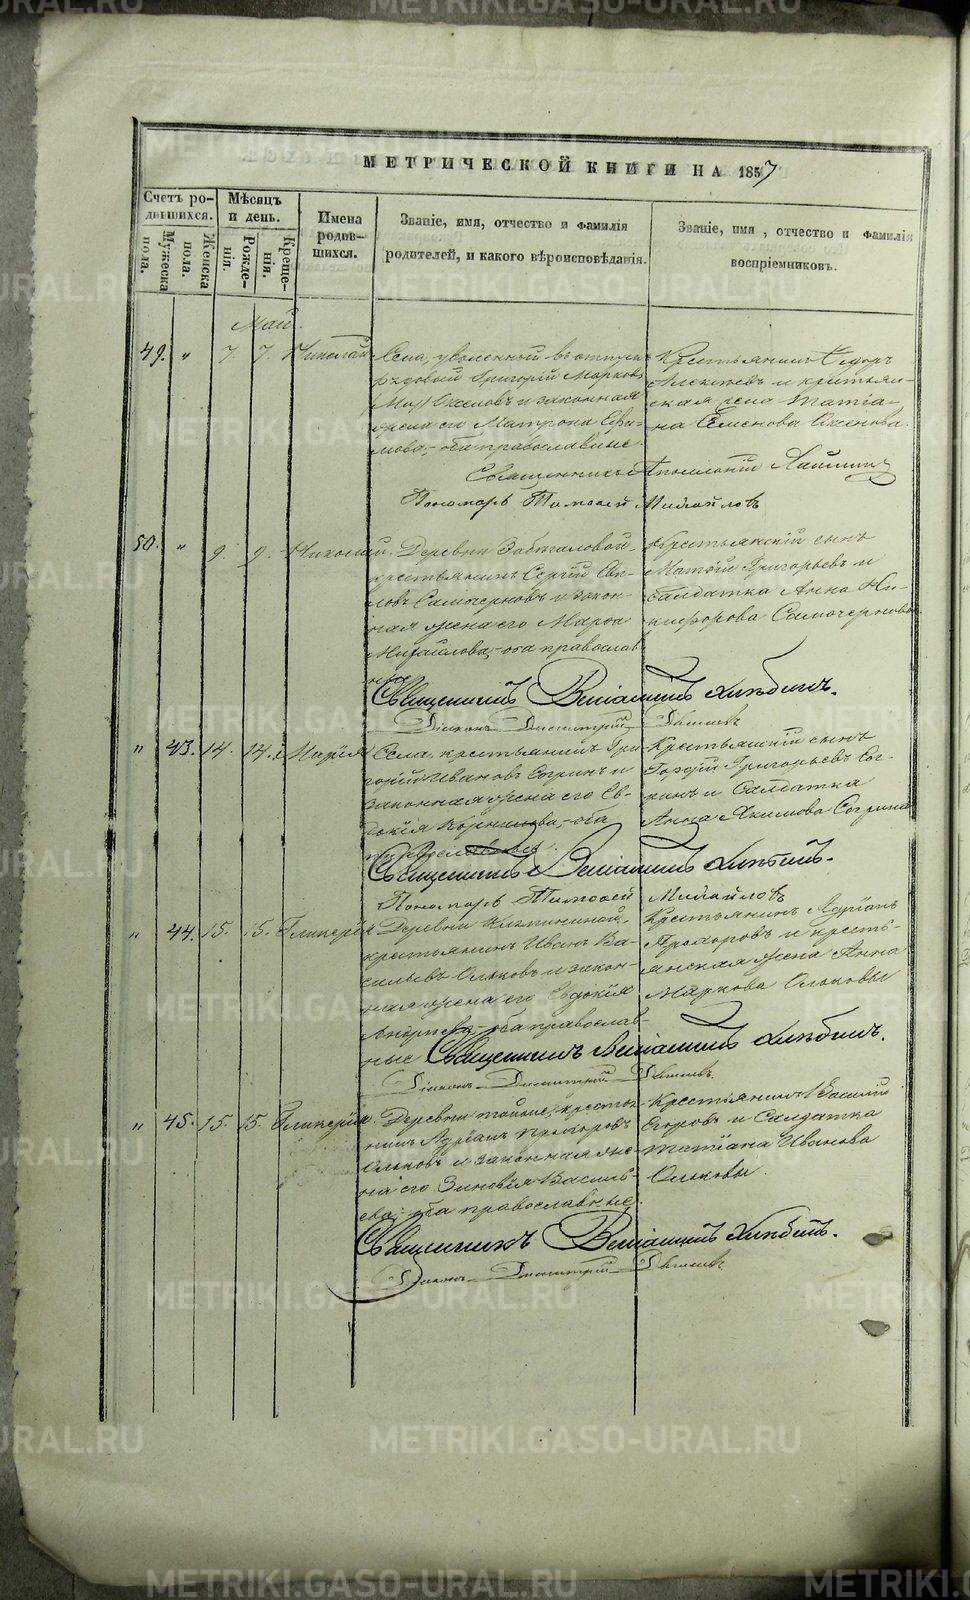 METRIKI.GASO-URAL.RU
МЕТРИЧЕСКОЙ КНИГИ НА 1857
Счетъ ро-
дившихся.
Мужеска
пола.
Женска
пола.
Мѣсяцъ
и день.
Рожде-
нія.
Креще-
нія.
Имена
родив-
шихся.
Званіе, имя, отчество и фамилія
родителей, и какого вѣроисповѣданія.
Званіе, имя, отчество и фамилія
воспріемниковъ.
Май.
49. " 7. 7. Николай
Села, уволенный въ отпускъ
рядовой Григорій Марковъ
и законная
жена его Матрона Ефи-
мова, оба православные
Крестьянинъ Ѳедоръ
Алексѣевъ и крестьян-
ская жена Татіа-
на Семенова
Священникъ
Пономарь Тимоѳей Михайловъ
50. " 9. 9. Николай.
Деревни
крестьянинъ Сергій
Самочерновъ и закон-
ная жена его Марѳа
Михайлова, оба православ-
ные
Крестьянскій сынъ
Матѳій Григорьевъ и
салдатка Анна Ни-
кифорова Самочерновы
Священникъ Веніаминъ Хлѣбинъ.
Діаконъ Димитрій
" 43. 14. 14. Марія
Села, крестьянинъ Гри-
горій Ивановъ Согринъ и
законная жена его Ев-
докія Корнилова, оба
православные.
Крестьянскій сынъ
Григорьевъ Сог-
ринъ и Салдатка
Анна Якимова Согрина
Священникъ Веніаминъ Хлѣбинъ.
Пономарь Тимоѳей Михайловъ
" 44. 15. 15. Гликерія
Деревни
крестьянинъ Иванъ Ва-
сильевъ Ольковъ и закон-
ная жена его Евдокія
Андреева, оба православ-
ные
Крестьянинъ Адріанъ
Прохоровъ и кресть-
янская жена Анна
Маркова Ольковы
Священникъ Веніаминъ Хлѣбинъ.
Діаконъ Димитрій
" 45. 15. 15. Гликерія.
Деревни тойже, кресть-
нинъ Адріанъ Прохоровъ
Ольковъ и законная же-
на его Зиновія Василь-
ева, оба православные.
Крестіянинъ Василій
Егоровъ и Салдатка
Татіана Иванова
Ольковы.
Священникъ Веніаминъ Хлѣбинъ.
Діаконъ Димитрій